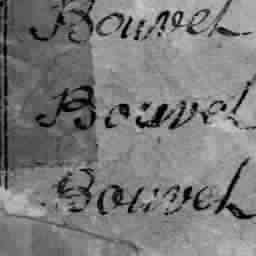 Bouvet
Bouvet
Bouvet